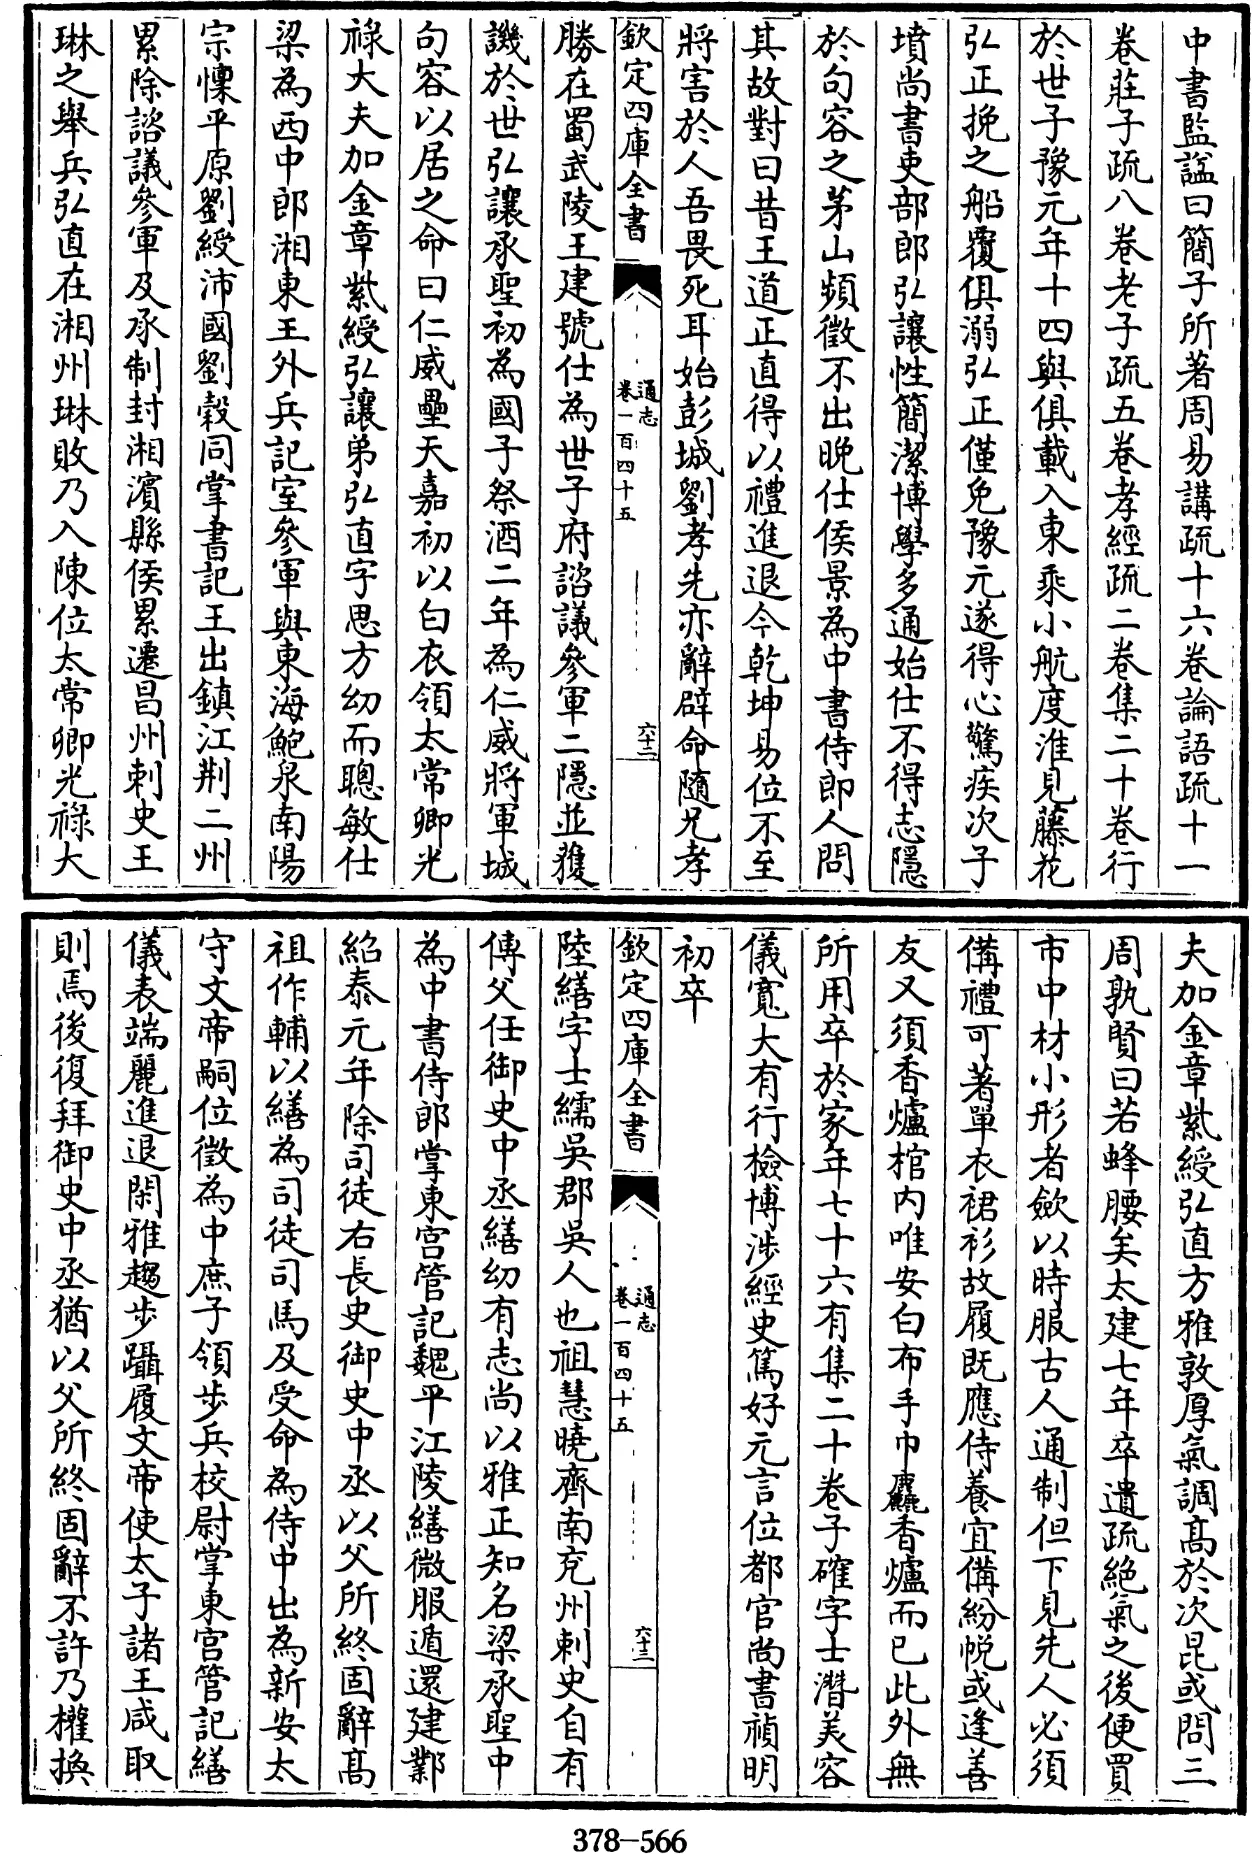 中書監諡曰簡子所著周易講疏十六卷論語疏十一
卷莊子疏八卷老子疏五卷孝經疏二卷集二十卷行
於世子豫元年十四與俱載入東乘小航度淮見藤花
弘正挽之船覆俱溺弘正僅免豫元遂得心驚疾次子
墳尚書吏部郎弘讓性簡潔博學多通始仕不得志隱
於句容之茅山頻徵不出晚仕侯景為中書侍郎人問
其故對曰昔王道正直得以禮進退今乾坤易位不至
將害於人吾畏死耳始彭城劉孝先亦辭辟命隨兄孝
欽定四庫全書
通志
卷一百四十五
六十二
勝在蜀武陵王建號仕為世子府諮議參軍二隱並獲
譏於世弘讓承聖初為國子祭酒二年為仁威將軍城
句容以居之命曰仁威壘天嘉初以白衣領太常卿光
祿大夫加金章紫綬弘讓弟弘直字思方幼而聰敏仕
梁為西中郎湘東王外兵記室參軍與東海鮑泉南陽
宗懍平原劉綬沛國劉瑴同掌書記王出鎮江荆二州
累除諮議參軍及承制封湘濱縣侯累遷昌州刺史王
琳之舉兵弘直在湘州琳敗乃入陳位太常卿光祿大
夫加金章紫綬弘直方雅敦厚氣調高於次昆或問三
周孰賢曰若蜂腰矣太建七年卒遺疏絕氣之後便買
市中材小形者歛以時服古人通制但下見先人必須
備禮可著單衣裙衫故履既應侍養宜備紛帨或逢善
友又須香爐棺内唯安白布手巾麤香爐而已此外無
所用卒於家年七十六有集二十卷子確字士潛美容
儀寬大有行檢博涉經史篤好元言位都官尚書禎明
初卒
欽定四庫全書
通志
卷一百四十五
六十三
陸繕字士繻吳郡吳人也祖慧曉齊南兖州刺史自有
傳父任御史中丞繕幼有志尚以雅正知名梁承聖中
為中書侍郎掌東宮管記魏平江陵繕微服遁還建鄴
紹泰元年除司徒右長史御史中丞以父所終固辭高
祖作輔以繕為司徒司馬及受命為侍中出為新安太
守文帝嗣位徵為中庶子領步兵校尉掌東宮管記繕
儀表端麗進退閑雅趨步躡履文帝使太子諸王咸取
則焉後復拜御史中丞猶以父所終固辭不許乃權換
378-566